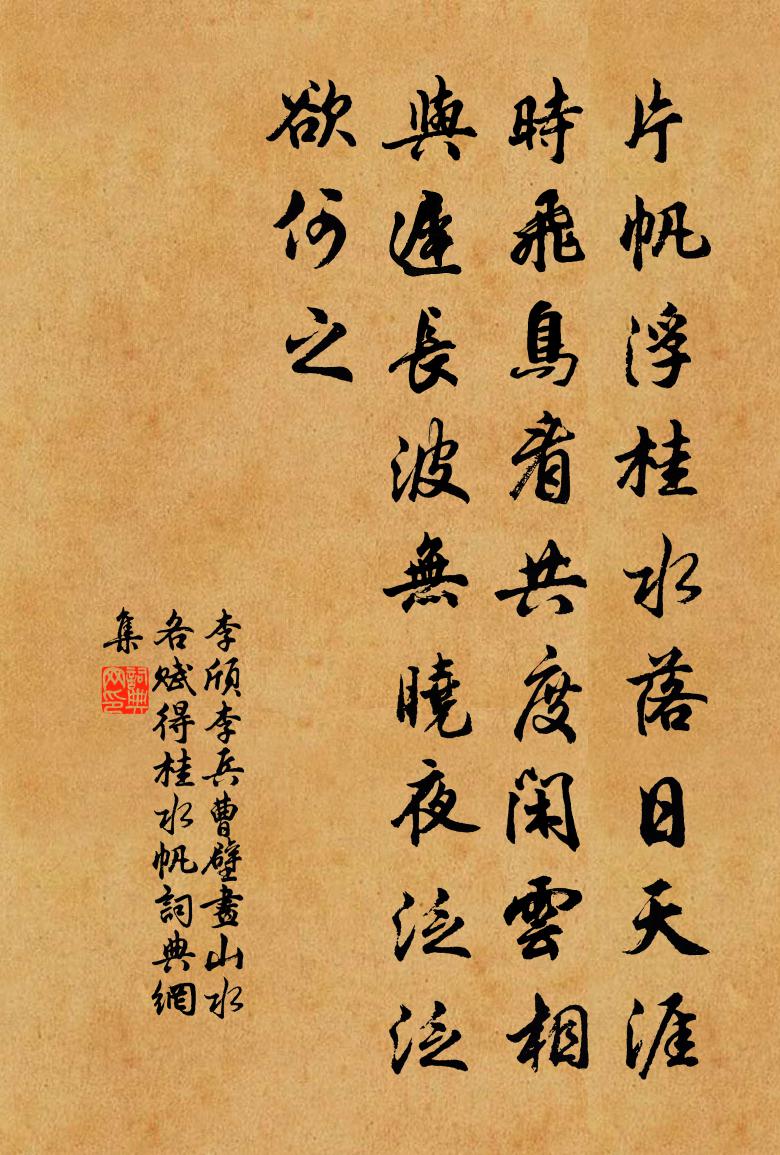 片帆浮桂水落日天涯
時飛鳥看共度閑雲相
與遲長波無曉夜泛泛
欲何之
李頎李兵曹壁畫山水
各賦得桂水帆詞典網
集
詞典
网印